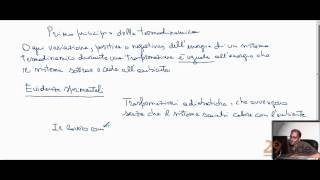 Primo principio della termodinamica
Ogni variazione, positiva o negativa, dell'energia di un sistema
termodinamico durante una trasformazione è uguale all'energia che
il sistema scambia o cede all'ambiente
Evidenze sperimentali
Trasformazioni adiabatiche, che avvengono
senza che il sistema scambi calore con l'ambiente
Il lavoro